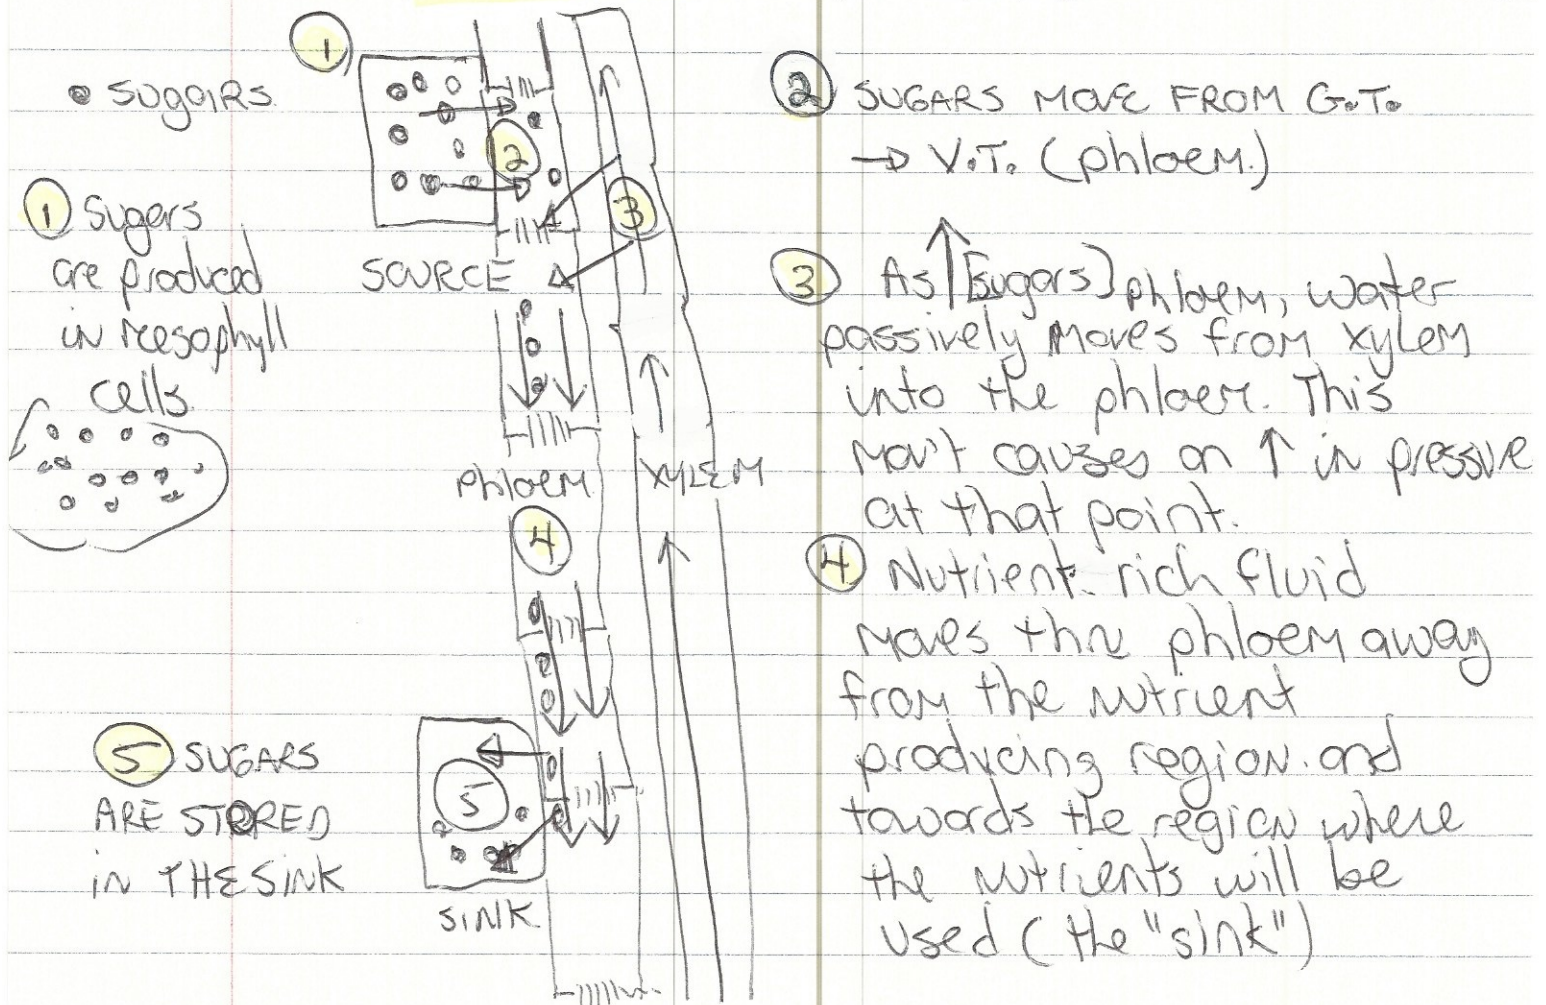 1
● SugaiRs
1 Sugers
are produced
in mesophyll
cells.
SOURCE
2
3
phloem
XYLEM
4
5 SUGARS
ARE STORED
IN THE SINK
5
SINK
2 SUGARS MOVE FROM G.T.
→ V.T. (phloem.)
3 As ↑[Sugars] phloem, water
passively moves from xylem
into the phloem. This
mov't causes an ↑ in pressure
at that point.
4 Nutrient-rich fluid
moves thru phloem away
from the nutrient
producing region and
towards the region where
the nutrients will be
used (the "sink")